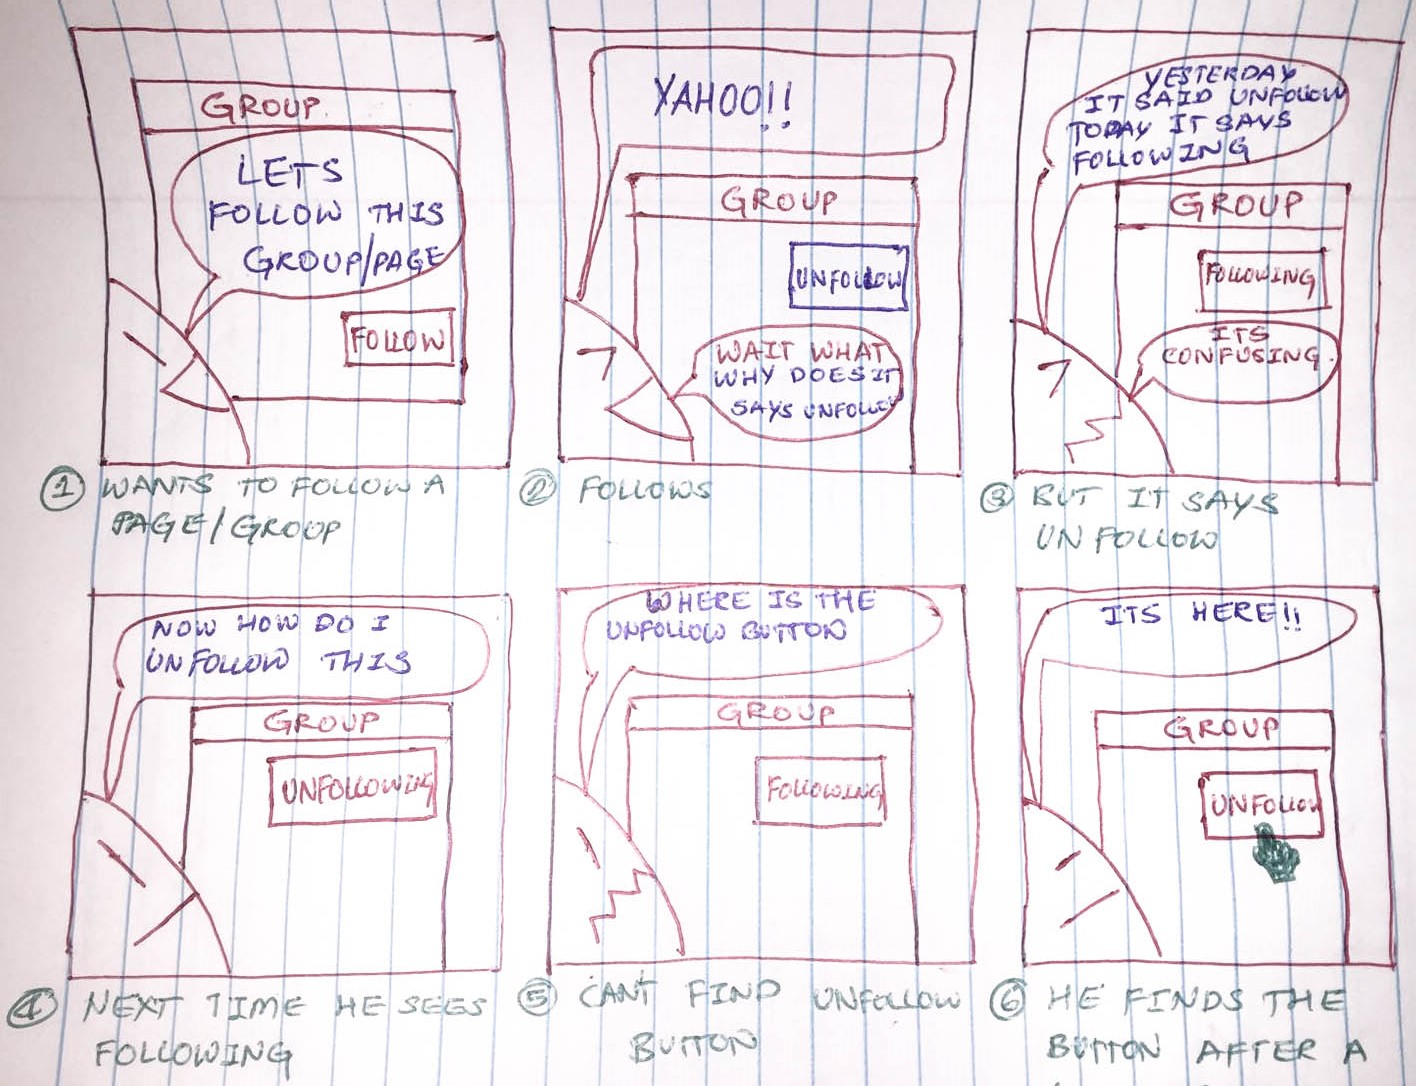 GROUP.
LETS
FOLLOW THIS
GROUP/PAGE
FOLLOW
1 WANTS TO FOLLOW A
PAGE/GROUP
YAHOO!!
GROUP
UNFOLLOW
WAIT WHAT
WHY DOES IT
SAYS UNFOLLOW
2 FOLLOWS
YESTERDAY
IT SAID UNFOLLOW
TODAY IT SAYS
FOLLOWING
GROUP
FOLLOWING
ITS
CONFUSING.
3 BUT IT SAYS
UNFOLLOW
NOW HOW DO I
UNFOLLOW THIS
GROUP
UNFOLLOWING
4 NEXT TIME HE SEES
FOLLOWING
WHERE IS THE
UNFOLLOW BUTTON
GROUP
FOLLOWING
5 CANT FIND UNFOLLOW
BUTTON
ITS HERE!!
GROUP
UNFOLLOW
6 HE FINDS THE
BUTTON AFTER A